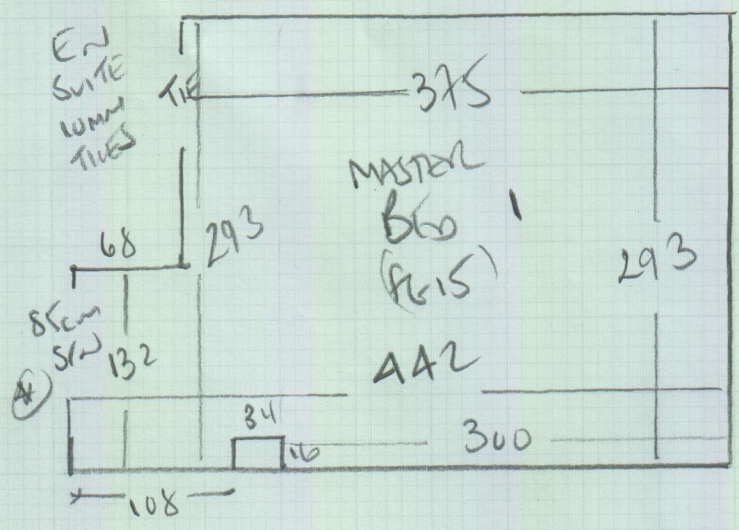 EN
SUITE
10MM
TILES
TILE
375
MASTER
BED 1
293
293
68
85cm
S/N
132
442
34
16
300
108